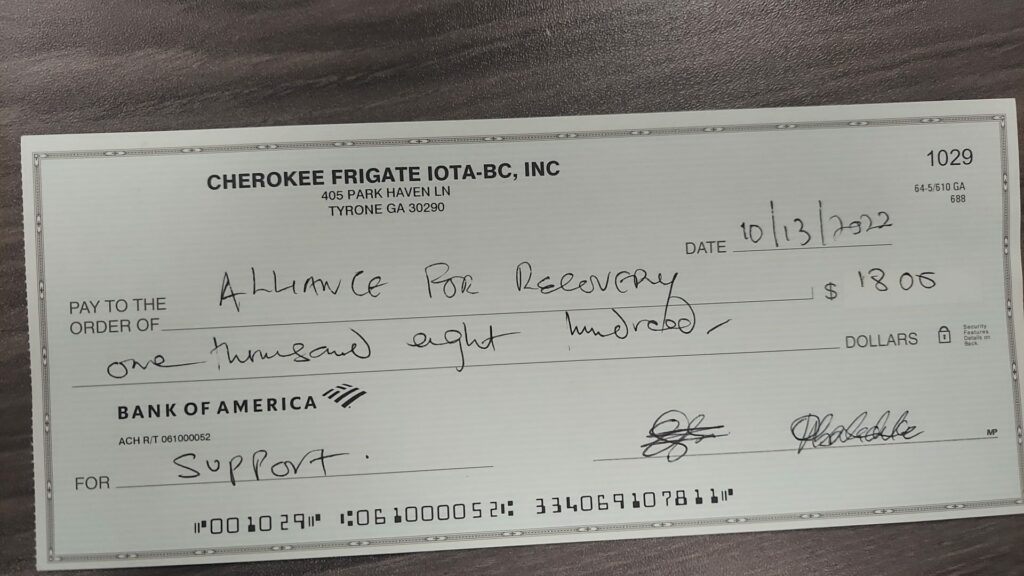 CHEROKEE FRIGATE IOTA-BC, INC
405 PARK HAVEN LN
TYRONE GA 30290
1029
64-5/610 GA
688
DATE 10/13/2022
PAY TO THE ORDER OF ALLIANCE FOR RECOVERY $ 1800
one thousand eight hundred DOLLARS
Security Features Details on Back
BANK OF AMERICA
ACH R/T 061000052
FOR support.
MP
⑈001029⑈ ⑆061000052⑆ 334069107811⑈